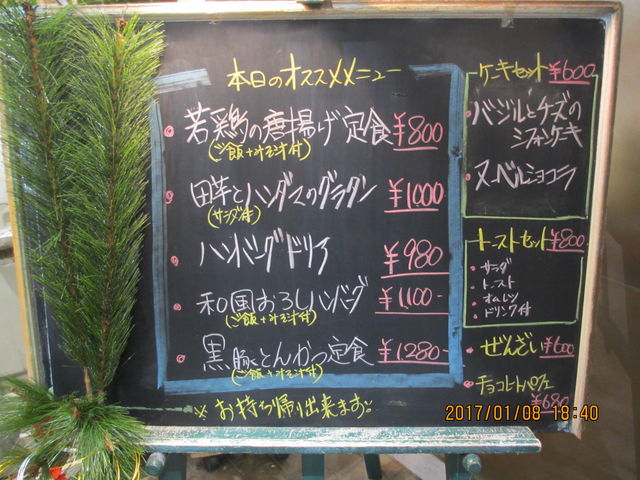 本日のオススメメニュー
若鶏の唐揚げ定食 ¥800
(ご飯+みそ汁付)
田芋とハンダマのグラタン ¥1000
(サラダ付)
ハンバーグドリア ¥980
和風おろしハンバーグ ¥1100-
(ご飯+みそ汁付)
黒豚とんかつ定食 ¥1280-
(ご飯+みそ汁付)
※お持ち帰り出来ます。
ケーキセット ¥600
バジルとチーズの
シフォンケーキ
ヌーベルショコラ
トーストセット ¥800
サラダ
トースト
オムレツ
ドリンク付
ぜんざい ¥600
チョコレートパフェ
¥680
2017/01/08 18:40